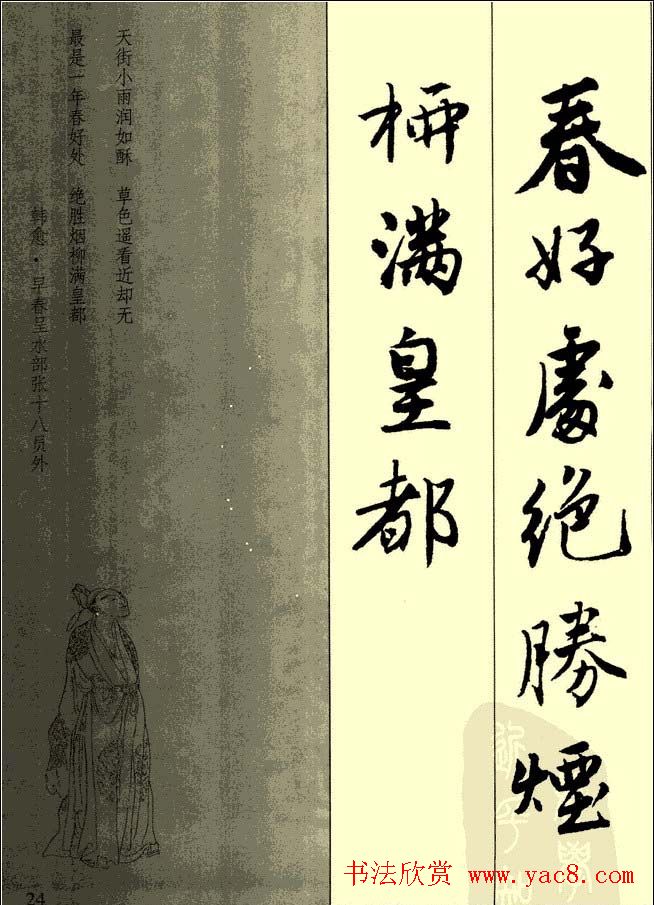 春好處絶勝煙
柳滿皇都
天街小雨润如酥 草色遥看近却无
最是一年春好处 绝胜烟柳满皇都
韩愈·早春呈水部张十八员外
24
书法欣赏 www.yac8.com